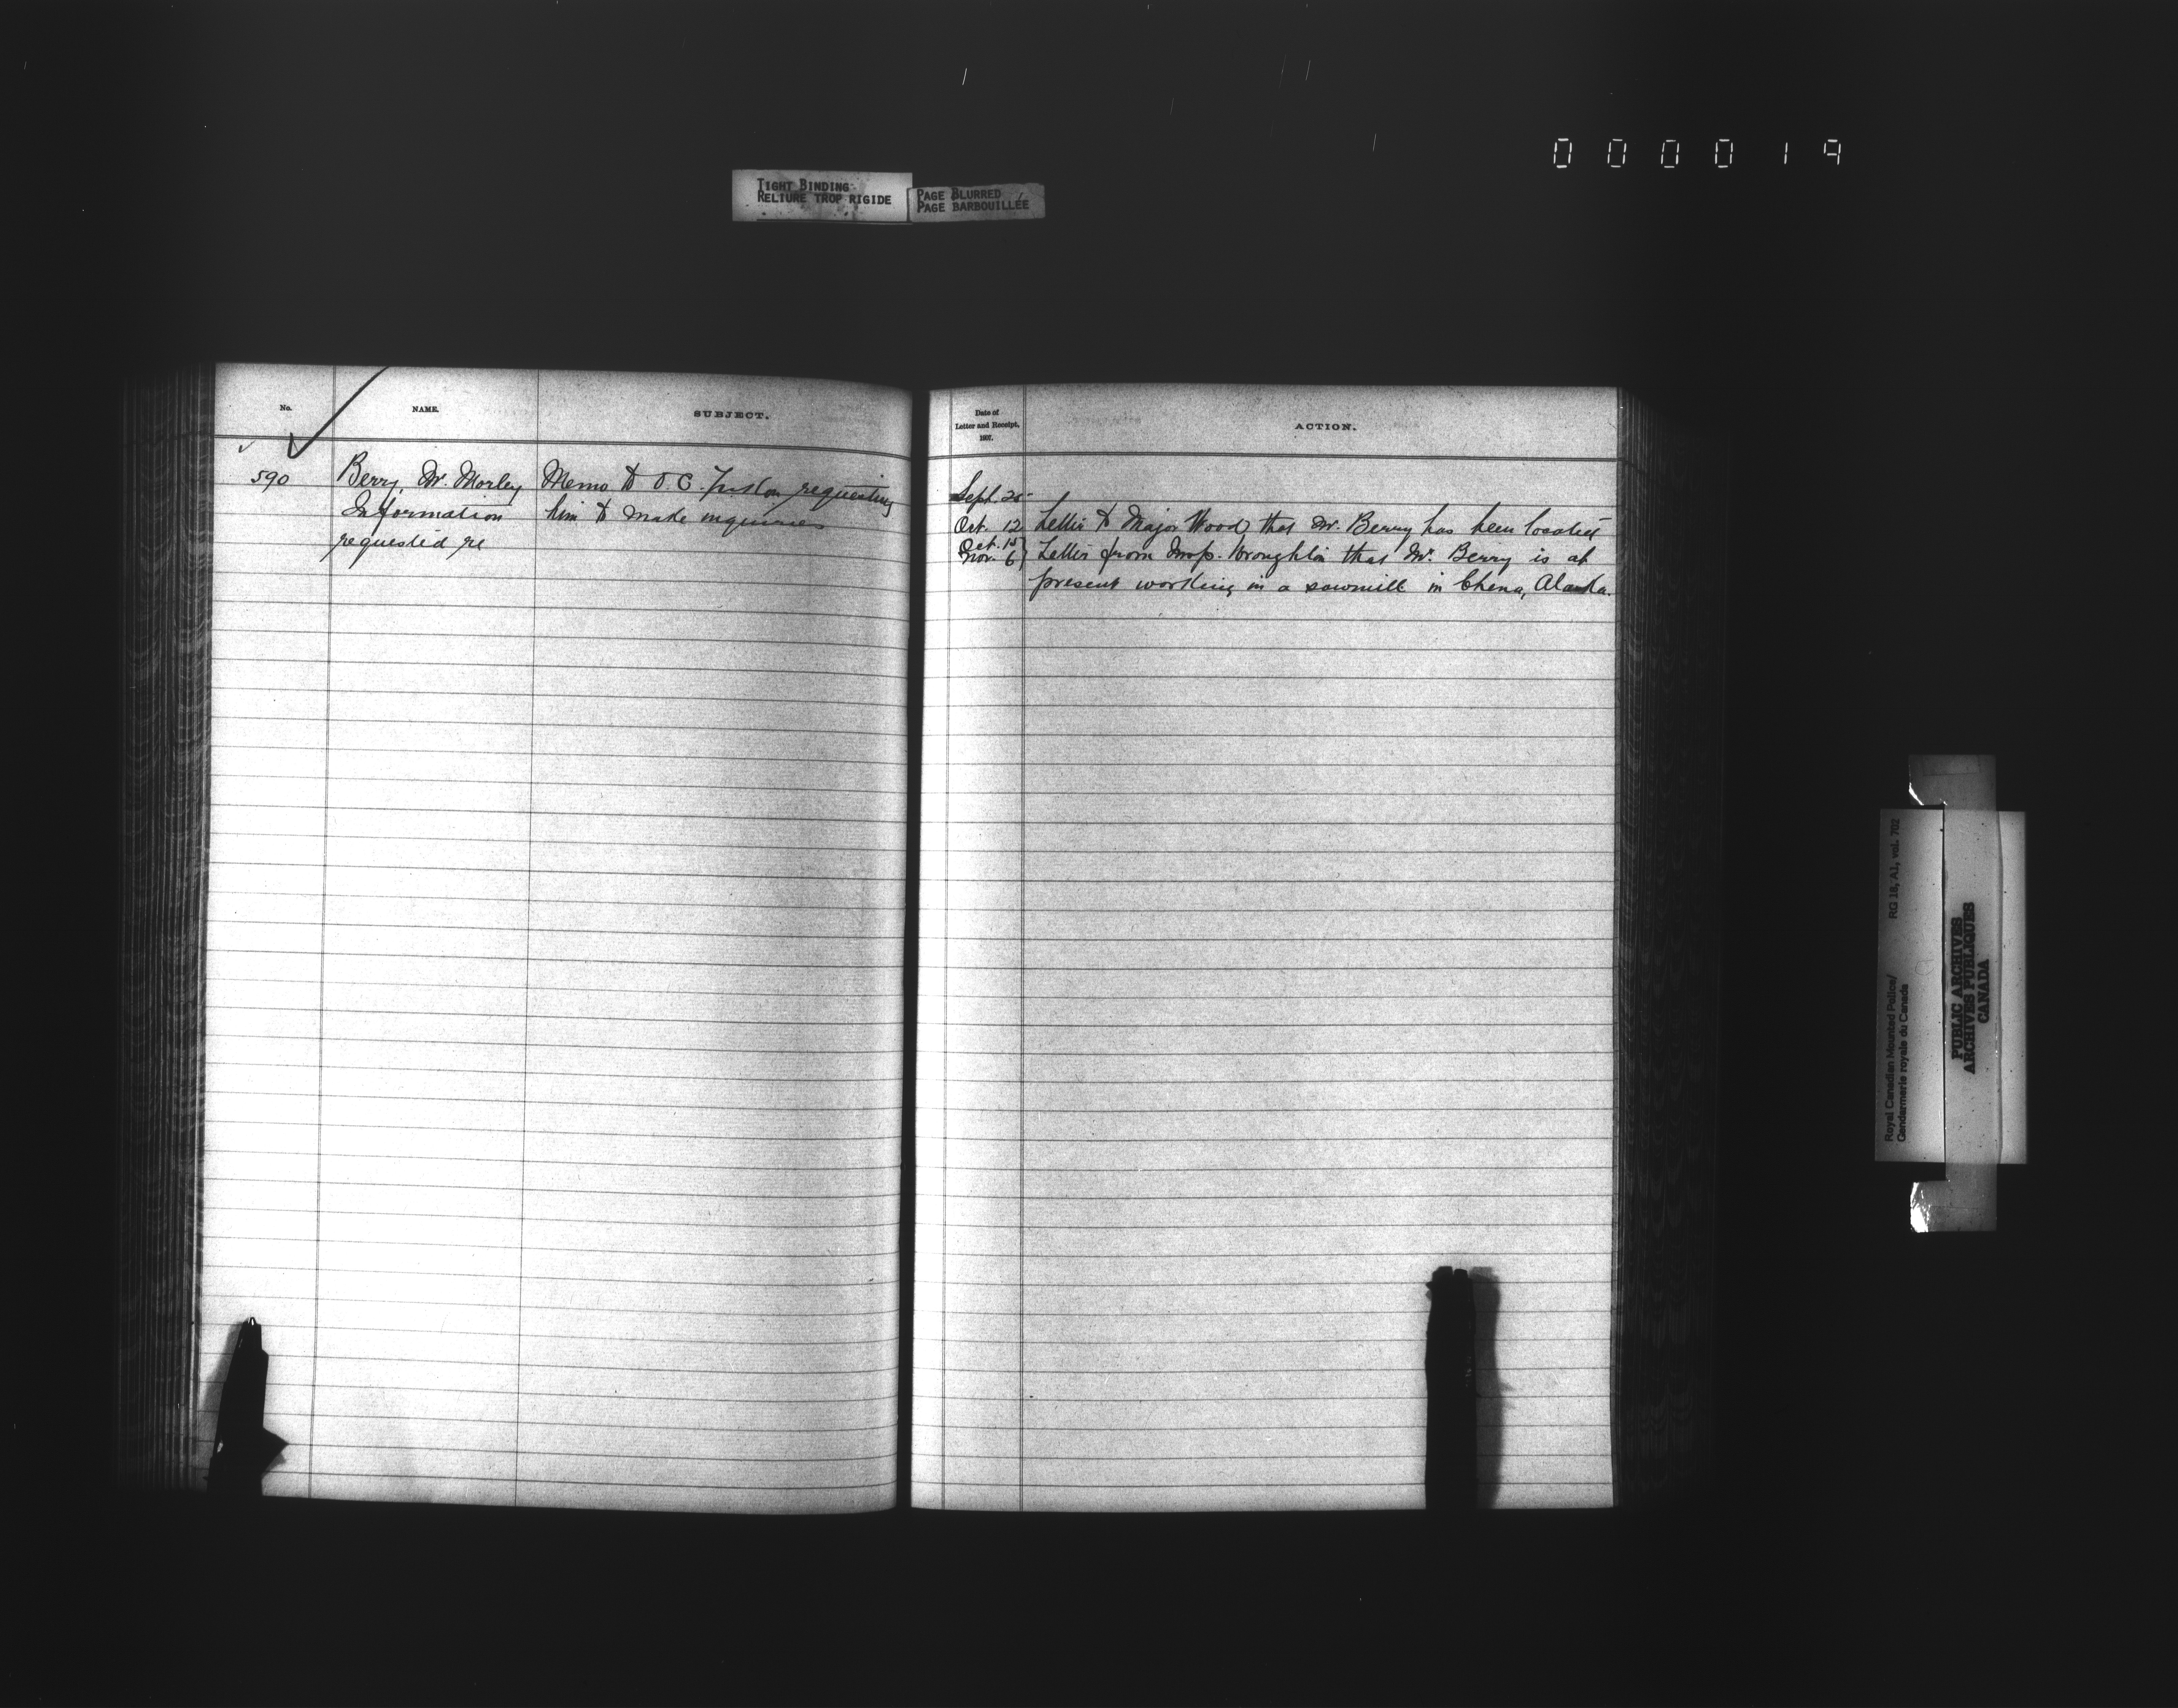 000019
TIGHT BINDING
RELIURE TROP RIGIDE
PAGE BLURRED
PAGE BARBOUILLÉE
No.
NAME.
SUBJECT.
590
Berry, Mr. Morley
Information
requested re
Memo to O.C. requesting
him to make inquiries
Date of
Letter and Receipt,
1907.
ACTION.
Sept. 25
Oct. 12 Letter to Major Wood, that Mr. Berry has been located
Oct. 15
Nov. 6 } Letter from Insp. Wroughton that Mr. Berry is at
present working in a sawmill in Chena, Alaska.
Royal Canadian Mounted Police/
Gendarmerie royale du Canada
RG 18, A1, vol. 702
PUBLIC ARCHIVES
ARCHIVES PUBLIQUES
CANADA